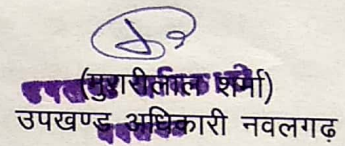 (मुरारीलाल शर्मा)
उपखण्ड अधिकारी नवलगढ़